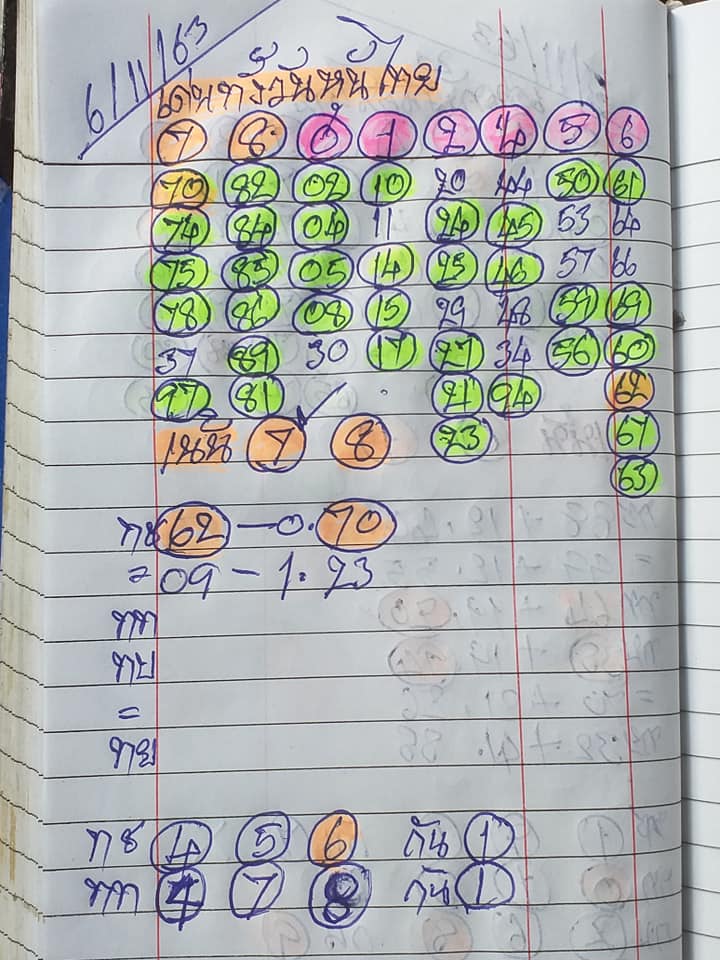 6/11/63
เด่นทั้งวันหุ้นไทย
7 8 0 1 2 4 5 6
70 82 02 10 20 44 50 61
74 84 04 11 24 45 53 64
75 85 05 14 25 46 57 66
78 86 08 15 29 48 59 69
37 89 30 17 27 34 56 60
97 81 21 94 62
เน้น 7 8 23 67
63
ทช 62 - 0.70
= 09 - 1.23
ทท
ทบ
=
ทย
ทช 4 5 6 กัน 1
ทท 4 7 8 กัน 1